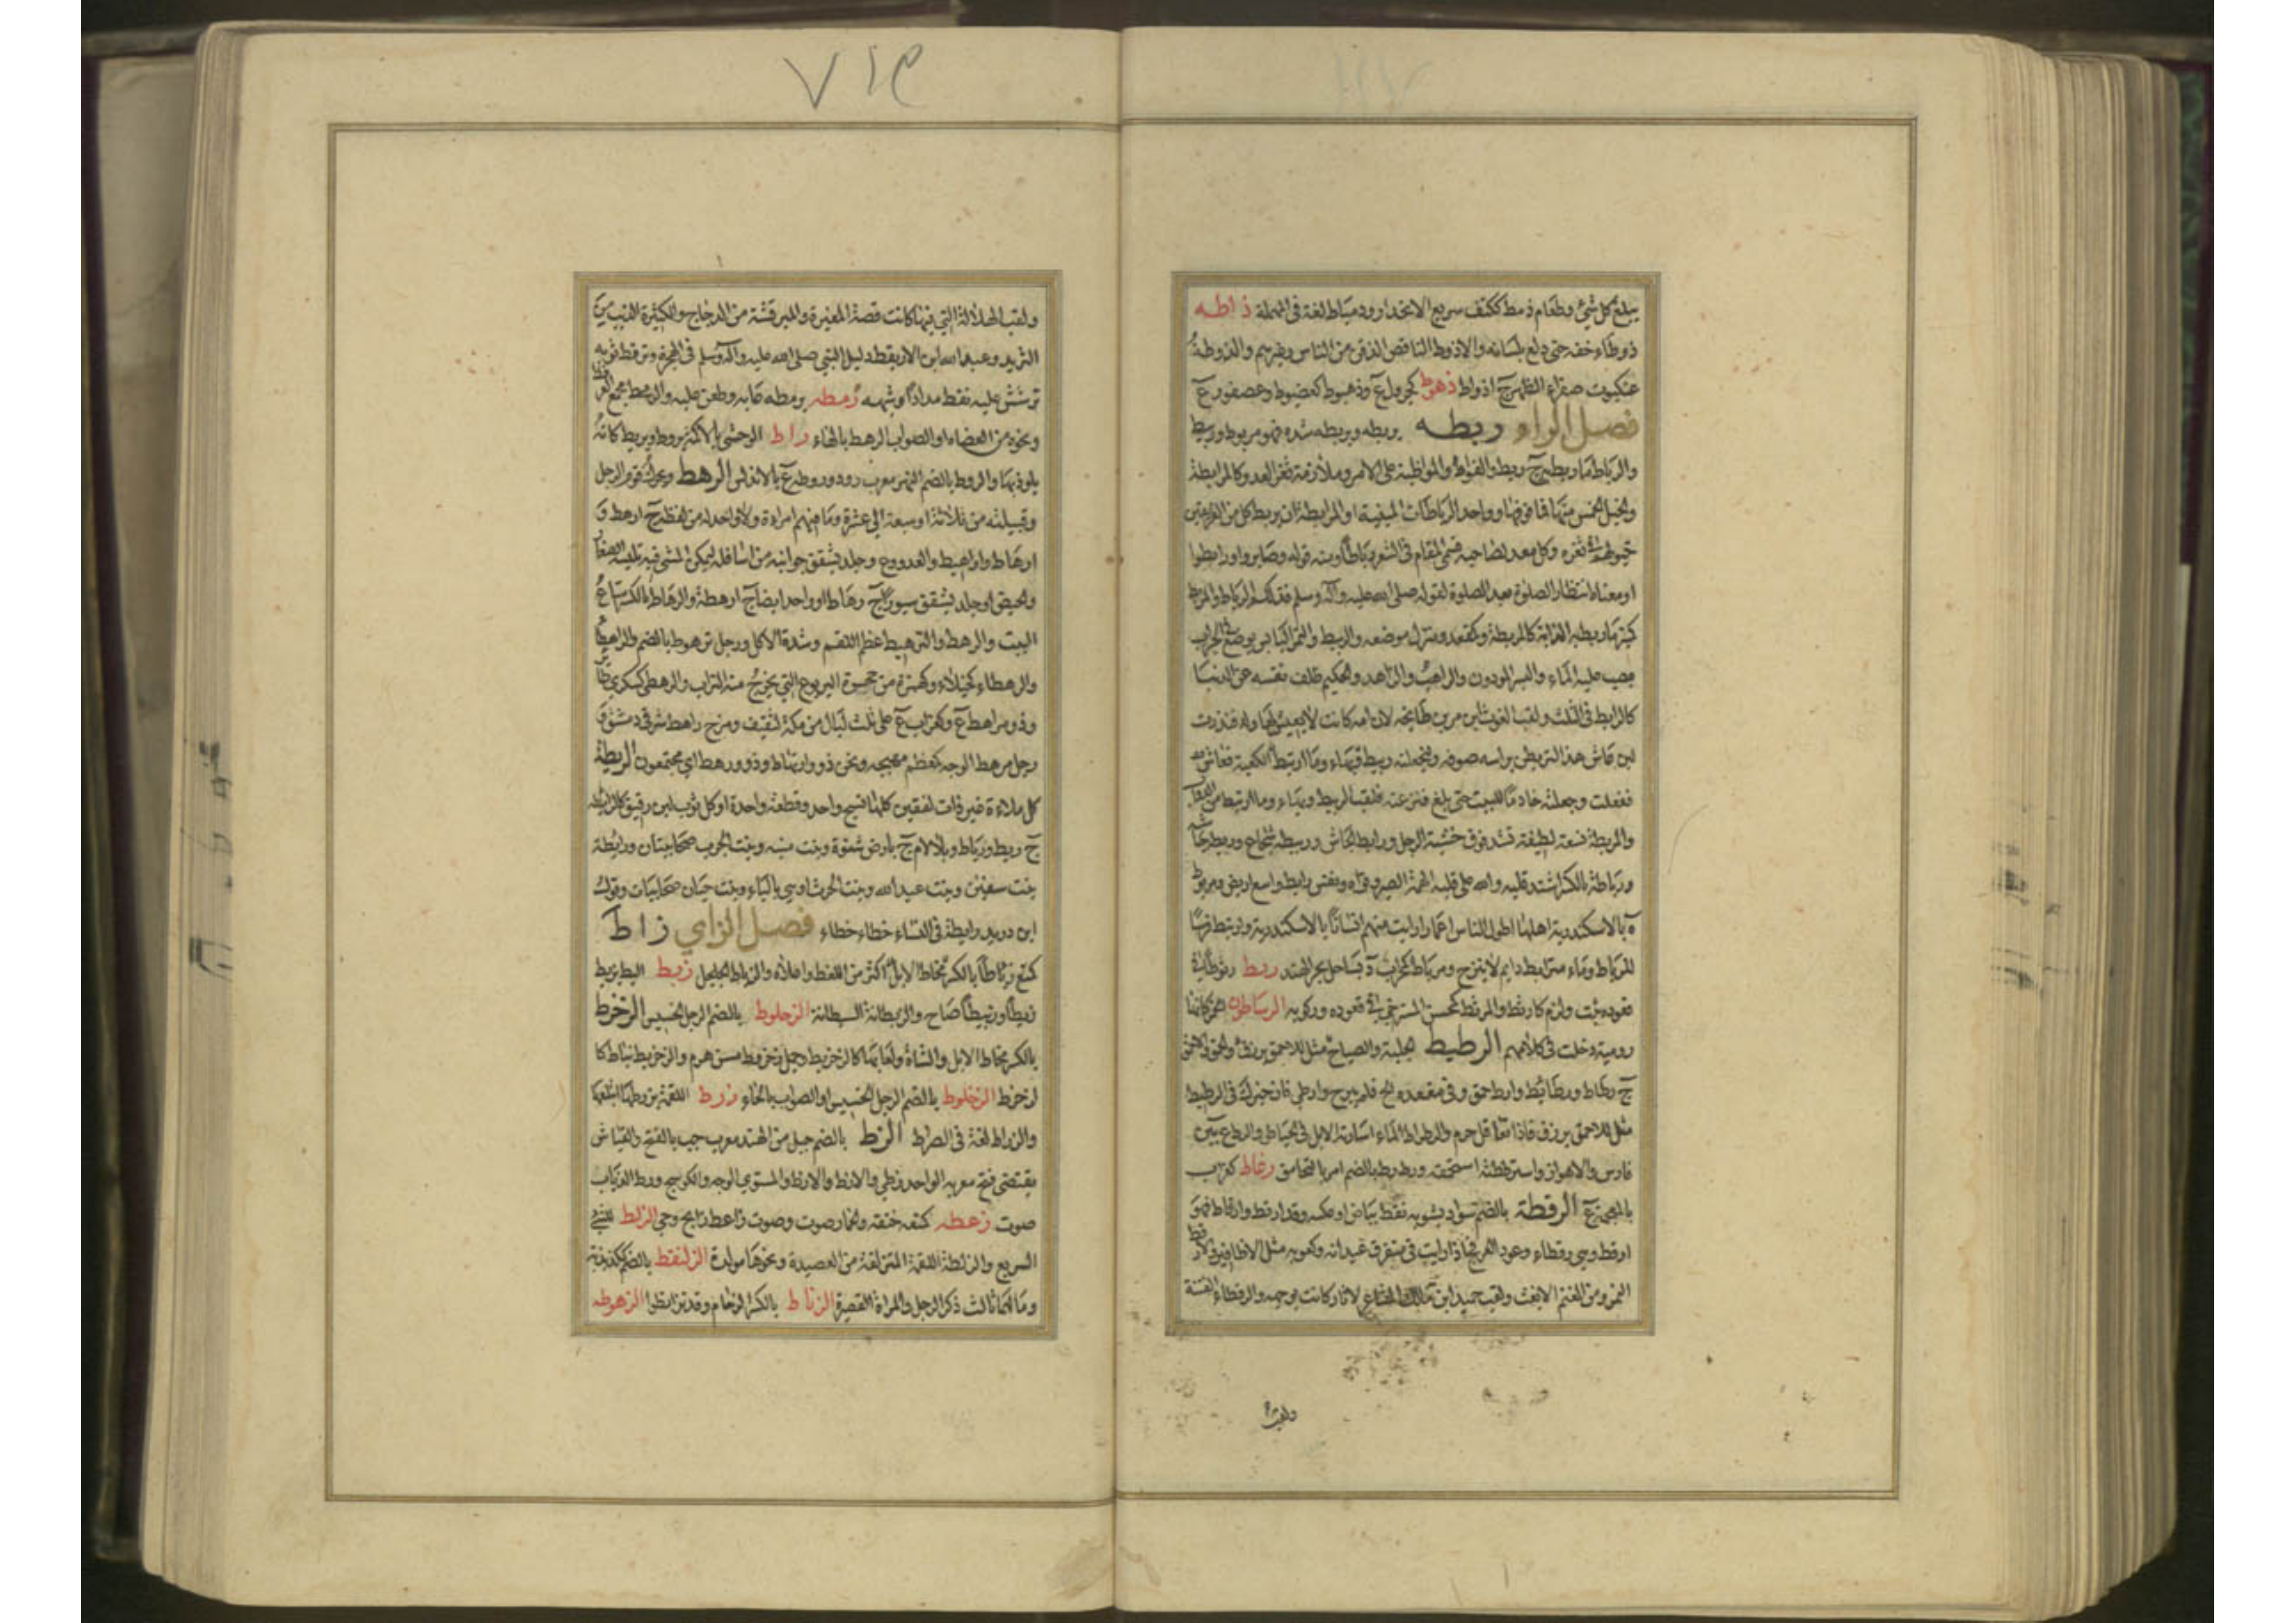 ٧١٤
يبلع كل شيء وطعام ذمط ككتف سريع الانحدار وذمياط لغة في المهملة ذاطه
ذوطاء خفه حتى دلع بلسانه والاذوط الناقص الذقن من الناس وغيرهم والذوطة
عنكبوت صفراء الظهر ج اذواط ذهوط كجرول ع وذهيوط كعضيوط وعصفور ع
فصل الراء ربطه يربطه ويربطه شده فهو مربوط وربيط
والرباط ما ربط به ج ربط والفؤاد والمواظبة على الامر وملازمة ثغر العدو كالمرابطة
والخيل الخمس منها فما فوقها وواحد الرباطات المبنية او المرابطة ان يربط كل من الفريقين
خيولهم في ثغره وكل معد لصاحبه فسمي المقام في الثغر رباطا ومنه قوله وصابروا ورابطوا
او معناه انتظار الصلوة بعد الصلوة لقوله صلى الله عليه وآله وسلم فذلكم الرباط والمربط
كمنبر ما ربط به الدابة كالمربطة وكمقعد ومنزل موضعه والربيط والتمر اليابس يوضع في الجراب
ويصب عليه الماء والبسر المودون والراهب والزاهد والحكيم ظلف نفسه عن الدنيا
كالرابط في الثلث ولقب الغوث ابن مر بن طابخه لان امه كانت لا يعيش لها ولد فنذرت
لئن عاش هذا لتربطن براسه صوفه ولتجعلنه ربيط الكعبة فعاش
ففعلت وجعلته خادما للبيت حتى بلغ فنزعته فلقب الربيط
والمربطة نسعة لطيفة تشد فوق خشبة الرحل ورابط الجاش وربيطه شجاع وربط جاشه
ورباطة بالكسر اشتد قلبه والله على قلبه الهمه الصبر وقواه ونفس رابط واسع اريض ومربوط
ة بالاسكندرية اهلها اطول الناس اعمارا رايت منهم اناسا بالاسكندرية وارتبط فرسا
للرباط وماء مترابط دايم لا ينزح ومرباط كمحراب د بساحل بحر الهند رثط رثوطا في
قعوده ثبت ولزم كارثط والمرثط كمحسن المسترخي في قعوده وركوبه الرساطون الخمر كانها
رومية دخلت في كلامهم الرطيط الجلبة والصياح مثل للاحمق يرزق والحمق والاحمق
ج رطاط ورطائط وارط حمق وفي مقعده الح فلم يبرح وارطي فان خيرك في الرطيط
مثل للاحمق يرزق فاذا تعاقل حرم والرطراط الماء اسارته الابل في الحياض والرط ع بين
فارس والاهواز واسترططته استحمقه ورط رط بالضم امر بالتحامق رغاط كغراب
بالمعجمة ع الرقطة بالضم سواد يشوبه نقط بياض او عكسه وقد ارقط وارقاط فهو
ارقط وهي رقطاء وعود العرفج اذا رايت في متفرق عيدانه وكعوبه مثل الاظافير والارقط
النمر ومن الغنم الابغث ولقب حميد ابن مالك الشاعر لاثار كانت بوجهه والرقطاء الفتنة
ولقب
ولقب الهلالية التي فيها كانت قصة المغيرة والمبرقشة من الدجاج والكثيرة الزيت من
الثريد وعبد الله ابن الاريقط دليل النبي صلى الله عليه وآله وسلم في الهجرة وترقط ثوبه
ترشش عليه نقط مداد او شبهه رمطه يرمطه عابه وطعن عليه والرمط مجمع العرفط
ونحوه من العضاه او الصواب الرهط بالهاء راط الوحشي بالاكمة يروط ويريط كانه
يلوذ بها والروط بالضم النهر معرب رود وروطه ع بالاندلس الرهط ويحرك قوم الرجل
وقبيلته من ثلاثة او سبعة الى عشرة وما فيهم امراءة ولا واحد له من لفظه ج ارهط و
ارهاط واراهيط والعدو وع وجلد يشقق جوانبه من اسافله ليمكن المشي فيه تلبسه الصغار
والحيض او جلد يشقق سيورا ج رهاط او واحد ايضا ج ارهطة والرهاط بالكسر متاع
البيت والرهط والترهيط عظم اللقم وشدة الاكل ورجل ترهوط بالضم والراهطاء
والرهطاء كخيلاء وكهمزة من جحرة اليربوع التي يخرج منه التراب والرهطى كسكرى طائر
وذو مراهط ع وكغراب ع على ثلث ليال من مكة لثقيف ومرج راهط شرقي دمشق و
رجل مرهط الوجه كمعظم مهبجه ونحن ذوو ارتهاط وذوو رهط اي مجتمعون الريطة
كل ملاءة غير ذات لفقين كلها نسج واحد وقطعة واحدة او كل ثوب لين رقيق كالرائطة
ج ريط ورياط وبلا لام ع بارض شنوة وبنت منبه وبنت الحرث صحابيتان ورائطة
بنت سفين وبنت عبد الله وبنت الحرث او هي بالياء وبنت حيان صحابيات وقول
ابن دريد رايطة في النساء خطاء خطاء فصل الزاي زاط
كمنع زئاطا بالكسر اكثر من اللغط واعلاه والزياط الجلجل زبط البط يزبط
زبطا وزبيطا صاح والزبطانة السبطانة الزحلوط بالضم الرجل الخسيس الزخرط
بالكسر مخاط الابل والشاة ولعابها كالزخريط وجمل زخروط مسن هرم والزخريط نبات كا
لزخرط الزخلوط بالضم الرجل الخسيس او الصواب بالحاء زرط اللقمة يزرطها ابتلعها
والزراط لغة في الصراط الزط بالضم جيل من الهند معرب جت بالفتح والقياس
يقتضي فتح معربه الواحد زطي والازط والاذط والمستوي الوجه والكوسج وزط الذباب
صوت زعطه كمنعه خنقه والحمار صوت وصوت زاعط ذابح وحي الزلط المشي
السريع والزلطة اللقمة المنزلقة من العصيدة ونحوها مولدة الزلنقط بالضم كقذعمة
وما لهما ثالث ذكر الرجل والمراة القصيرة الزناط بالكسر الزحام وقد تزانطوا الزهوطه